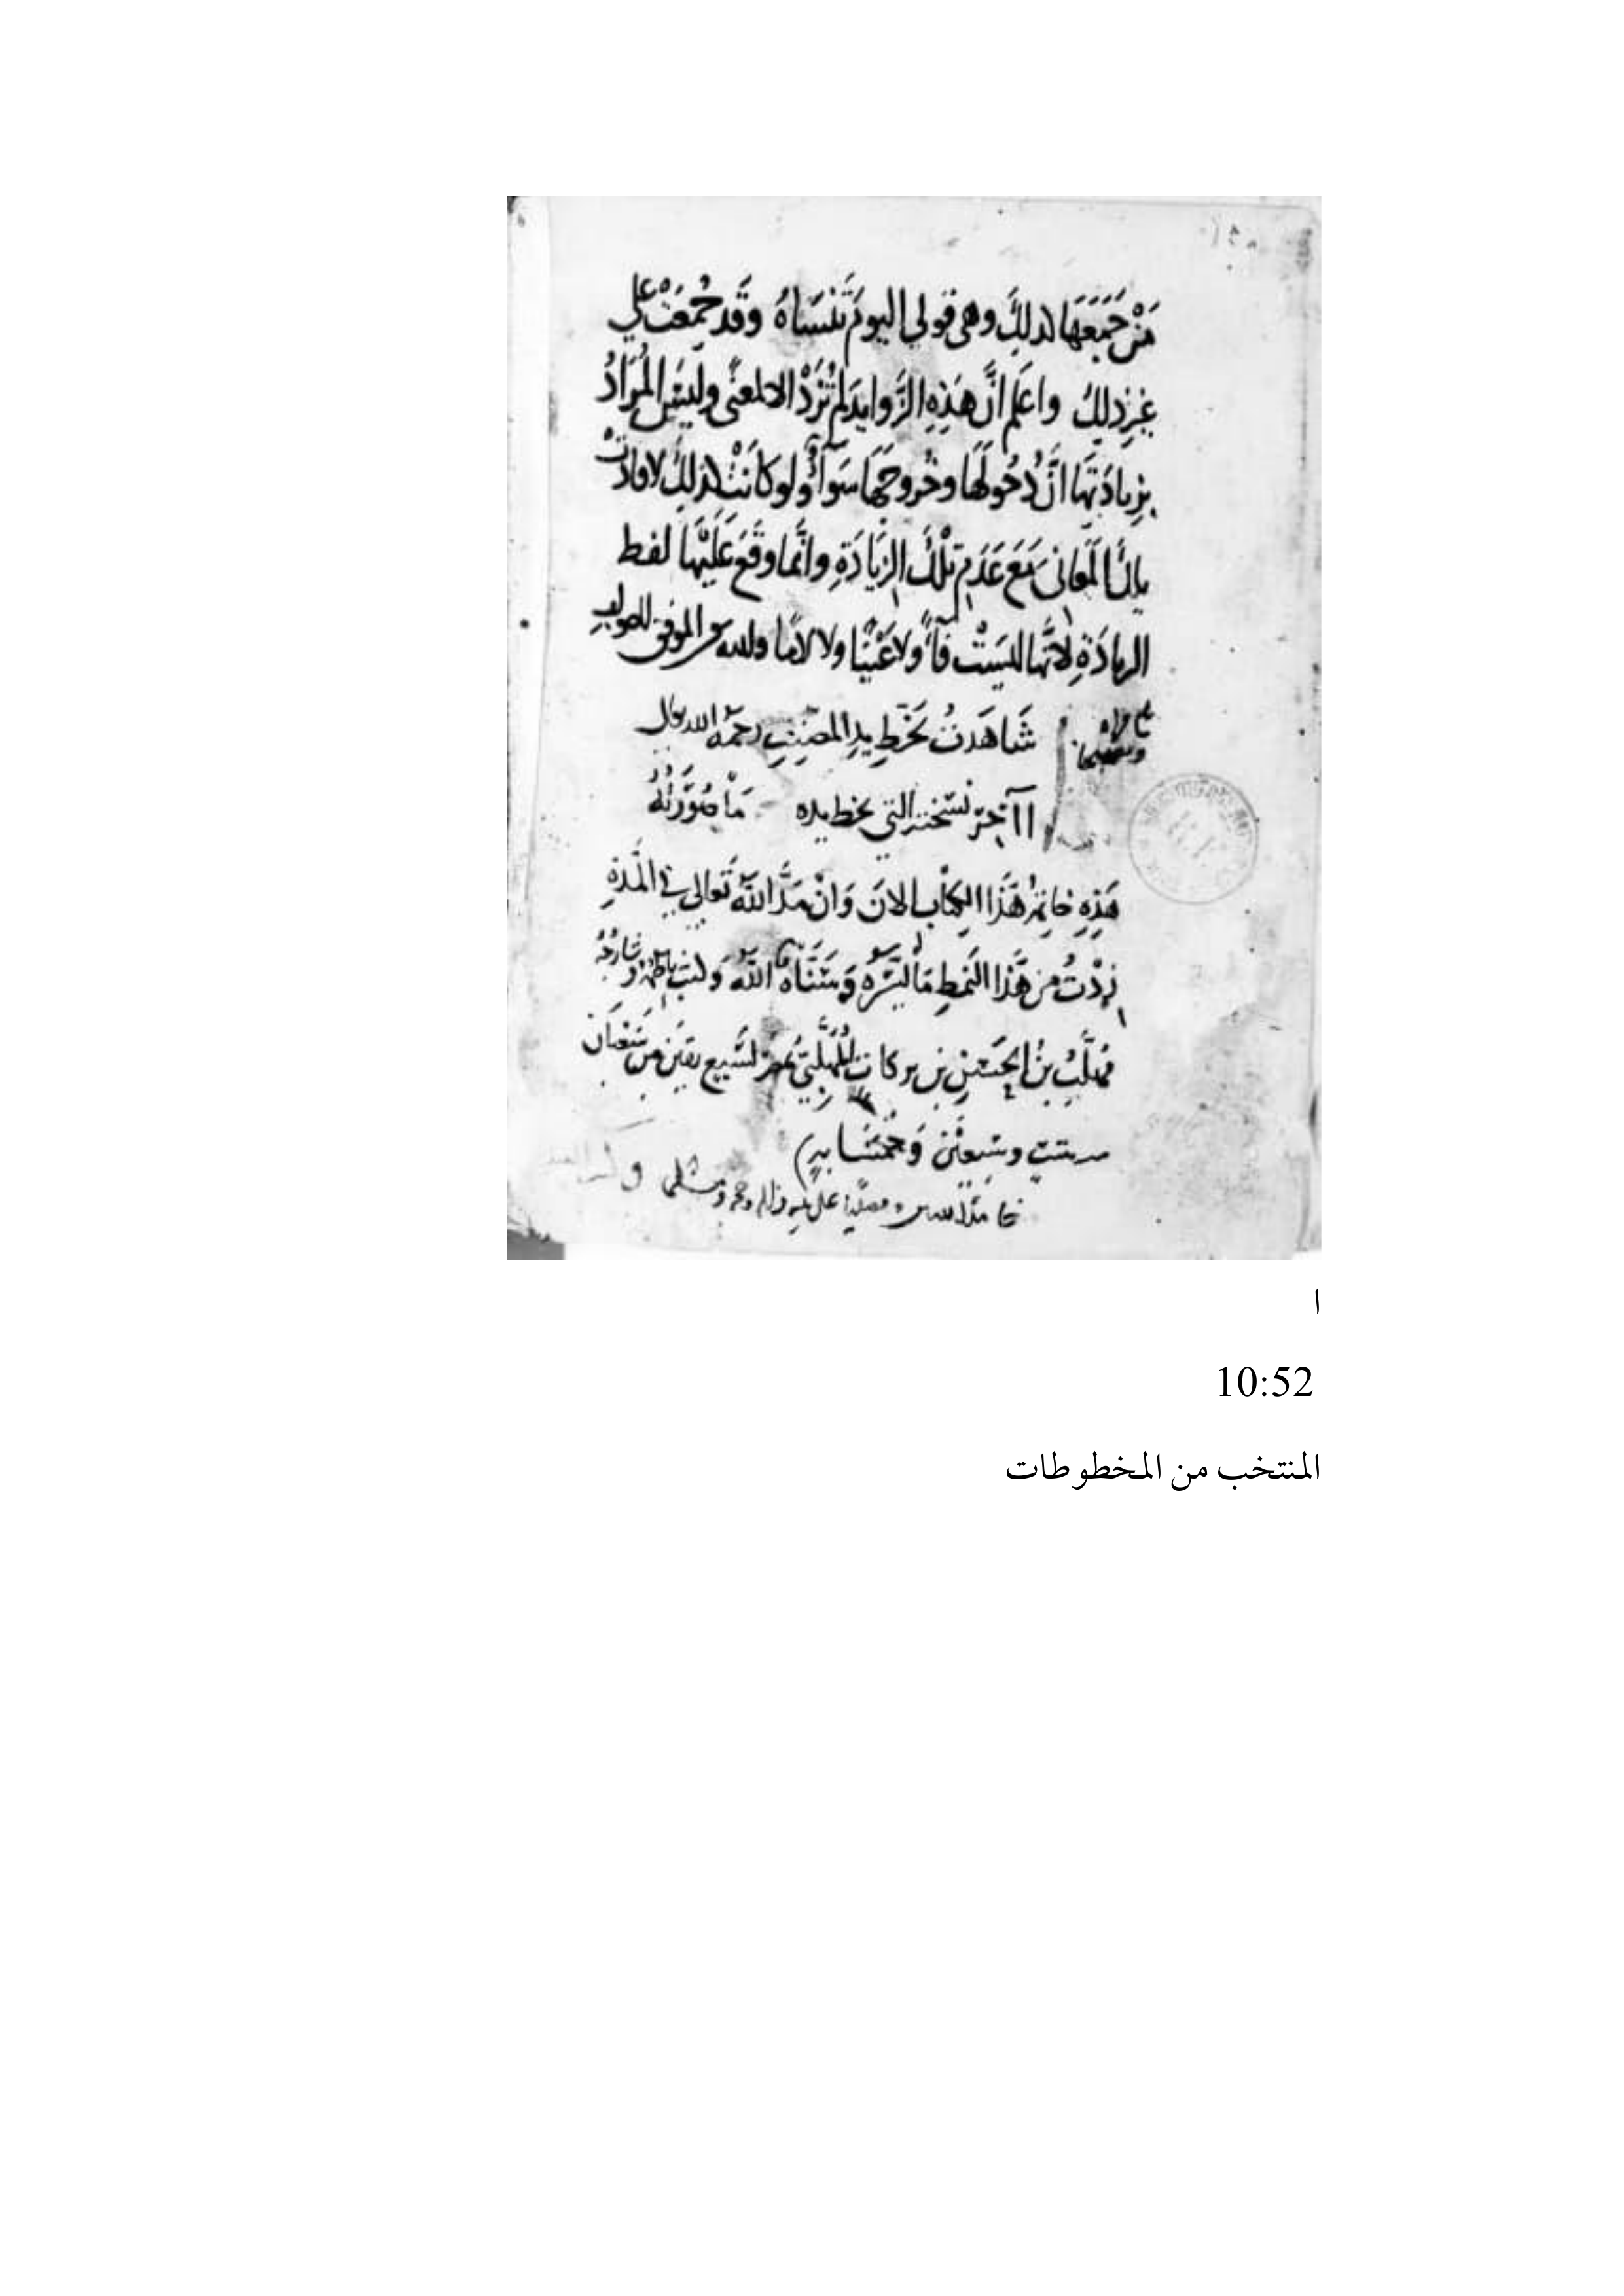 مَنْ جَمَعَهَا لذلِكَ وهي قولي اليومَ تَنْسَاهُ وقَد جُمِعَتْ علي
غيرِ ذلِكَ واعلم انَّ هَذِهِ الزَّوايدَ لم تُزَدْ الا لمعنًى وليسَ المُرَادُ
بِزيادَتِهَا انَّ دُخُولَهَا وخُروجَهَا سَوَآءٌ ولو كانَتْ لذلك لافادتْ
تلك المَعَاني مَعَ عَدَمِ تلْكَ الزيَادَةِ وانَّما وقَعَ عَلَيْهَا لفظ
الزيادَةِ لانَّها ليسَتْ فآءً ولا عَيْنًا ولا لامًا والله الموفق للصواب
شَاهَدتُ بخَطِ يدِ المصنِفِ رحمَهُ الله
آخِرَ نسْختِهِ التي بخط يده مَا صُورَتُهُ
هَذِهِ خاتِمَةُ هَذَا الكِتَاب الانَ وَانْ مَدَّ اللَّهُ تَعالي في المُدَّةِ
زِدْتُ من هَذَا النَمطِ مَا يَسَّرَهُ وَسَنَّاهُ اللَّهُ وكتبَ ناظمُهُ وشَارِحُهُ
مُهَلَّبُ بنُ الحَسَنِ بنِ بركات المُهَلَّبيُّ لسَبعٍ بقينَ من شَعْبَانَ
سنة ستٍ وسَبعِيْنَ وَخَمْسَمايةٍ
حامدًا لله ومصليًا علي نبيه واله وصحبه ومسلما
ا
10:52
المنتخب من المخطوطات